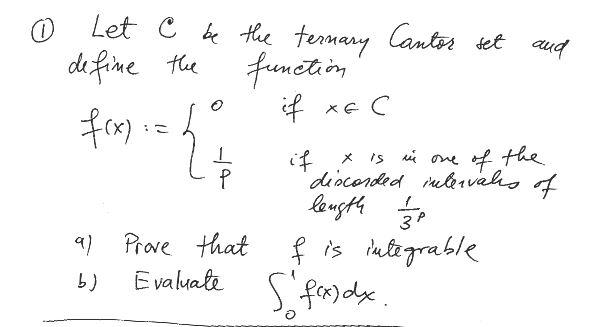 ① Let C be the ternary Cantor set and
define the function
f(x) := { 0 if x ∈ C
1/p if x is in one of the
discarded intervals of
length 1/3^p
a) Prove that f is integrable
b) Evaluate ∫₀¹ f(x) dx.